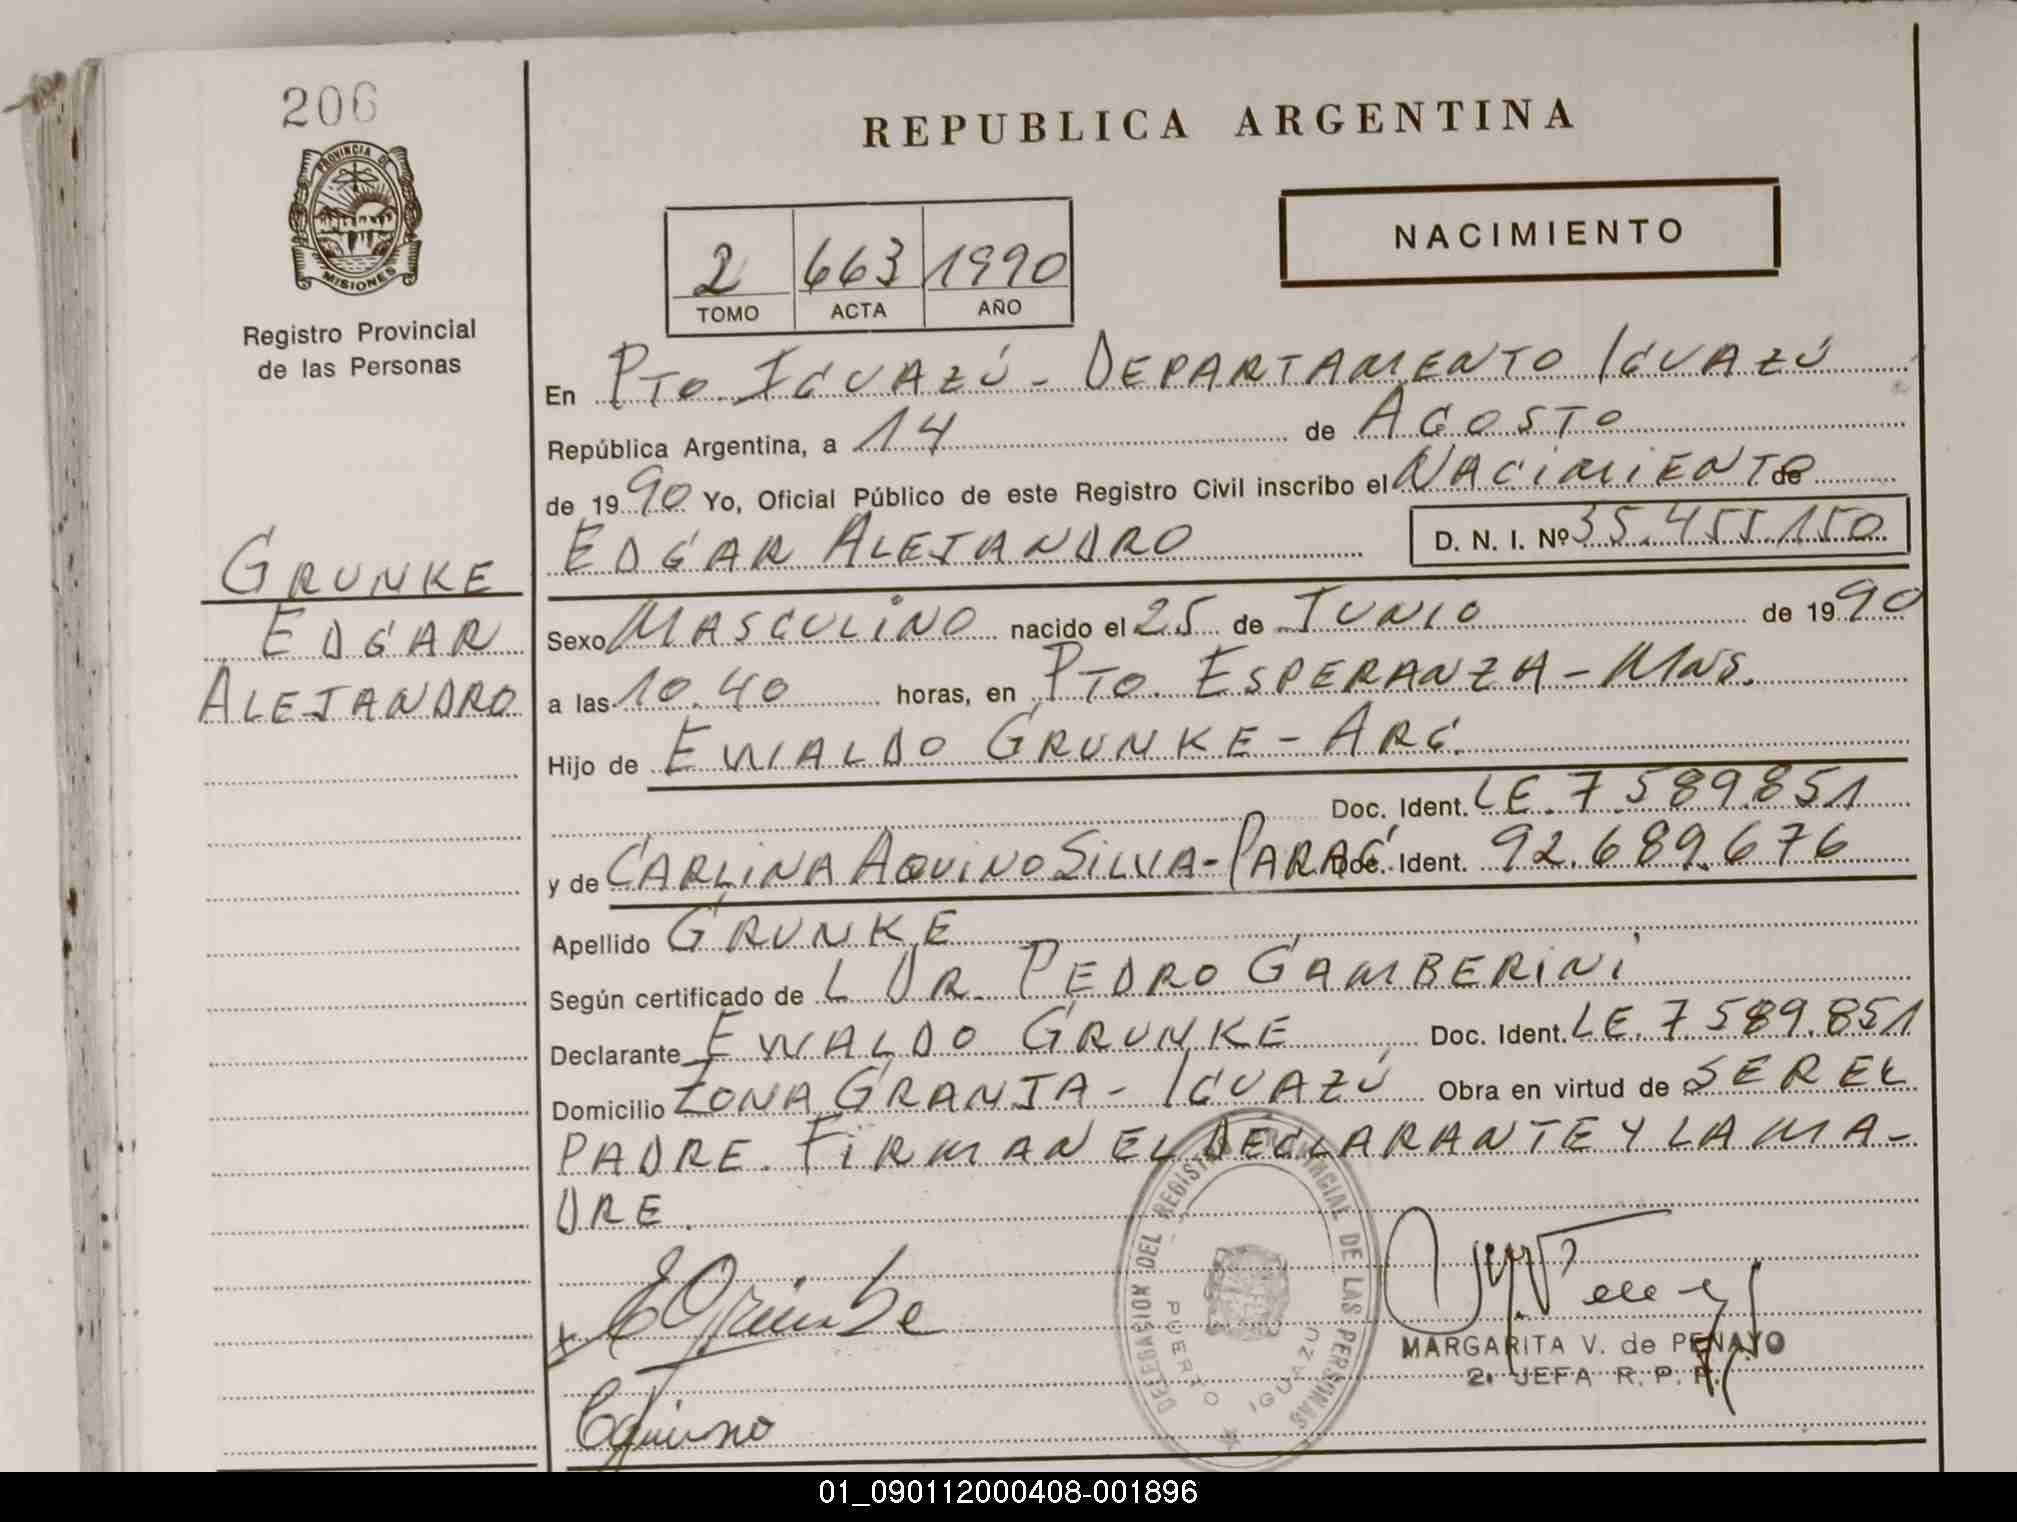 206
PROVINCIA DE
MISIONES
Registro Provincial
de las Personas
GRUNKE
EDGAR
ALEJANDRO
REPUBLICA ARGENTINA
NACIMIENTO
2 663 1990
TOMO ACTA AÑO
En PTO. IGUAZÚ - DEPARTAMENTO IGUAZÚ
República Argentina, a 14 de AGOSTO
de 1990 Yo, Oficial Público de este Registro Civil inscribo el NACIMIENTO de
EDGAR ALEJANDRO D. N. I. Nº 35.455.150
Sexo MASCULINO nacido el 25 de JUNIO de 1990
a las 10.40 horas, en PTO. ESPERANZA - MNS.
Hijo de EWALDO GRUNKE - ARG.
Doc. Ident. LE. 7.589.851
y de CARLINA AQUINO SILVA - PARAG. Doc. Ident. 92.689.676
Apellido GRUNKE
Según certificado de L DR. PEDRO GAMBERINI
Declarante EWALDO GRUNKE Doc. Ident. LE. 7.589.851
Domicilio ZONA GRANJA - IGUAZÚ Obra en virtud de SER EL
PADRE. FIRMAN EL DECLARANTE Y LA MA-
DRE.
DELEGACION DEL REGISTRO PROVINCIAL DE LAS PERSONAS
PUERTO IGUAZU
MARGARITA V. de PENAYO
2. JEFA R. P. P.
01_090112000408-001896